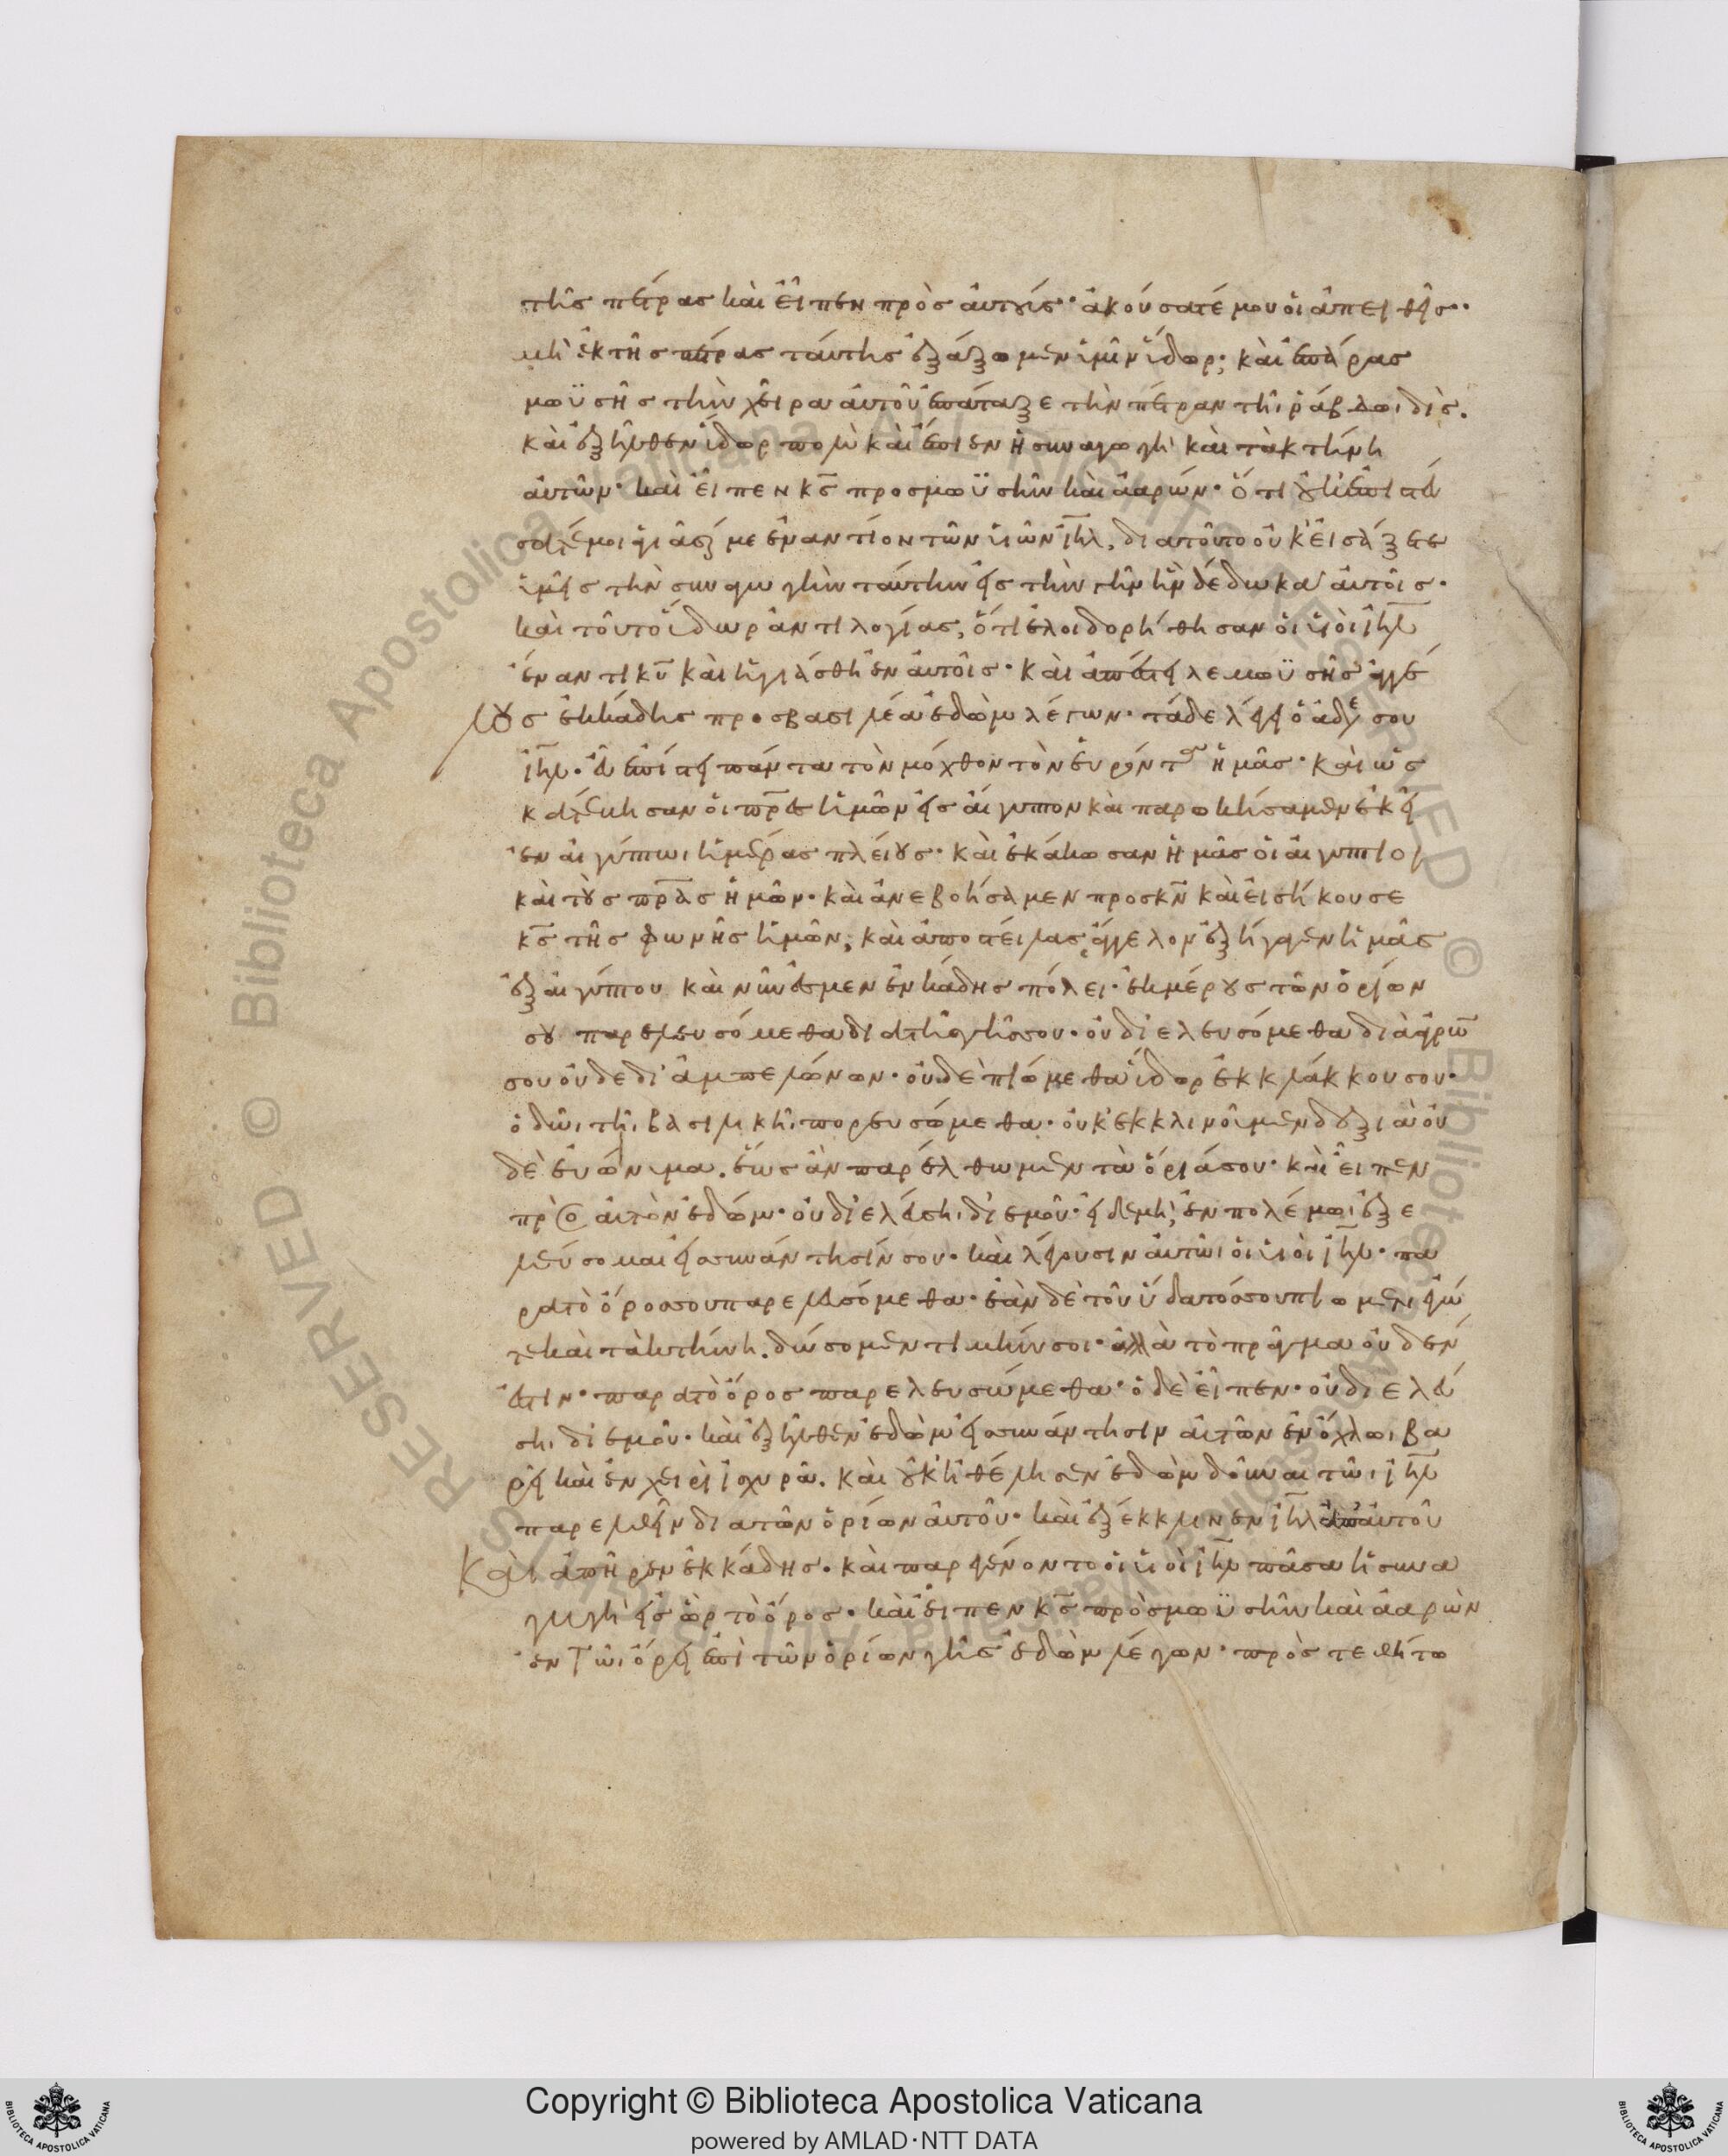 τῆς πέτρας καὶ εἶπεν πρὸς αὐτούς· ἀκούσατέ μου οἱ ἀπειθεῖς·
μὴ ἐκ τῆς πέτρας ταύτης ἐξάξωμεν ὑμῖν ὕδωρ; καὶ ἐπάρας
μωϋσῆς τὴν χεῖρα αὐτοῦ ἐπάταξε τὴν πέτραν τῆι ῥάβδωι δίς.
καὶ ἐξῆλθεν ὕδωρ πολὺ καὶ ἔπιεν ἡ συναγωγὴ καὶ τὰ κτήνη
αὐτῶν· καὶ εἶπεν κς προς μωϋσῆν καὶ ἀαρών· ὅτι οὐκ ἐπιστεύ
σατέ μοι ἁγιάσαι με ἐναντίον τῶν υἱῶν ιηλ, διατοῦτο οὐκ εἰσάξετε
ὑμεῖς τὴν συναγωγὴν ταύτην εἰς τὴν γῆν ἣν δέδωκα αὐτοῖς·
καὶ τοῦτο ὕδωρ ἀντιλογίας, ὅτι ἐλοιδορήθησαν οἱ υἱοὶ ιηλ
ἔναντι κυ καὶ ἡγιάσθη ἐν αὐτοῖς· καὶ ἀπέστειλε μωϋσῆς ἀγγέ
λους ἐκ κάδης προς βασιλέα ἐδὼμ λέγων· τάδε λέγει ὁ ἀδελφός σου
ιηλ· σὺ ἐπίστη πάντα τὸν μόχθον τὸν εὑρόντα ἡμᾶς· καὶ ὡς
κατέβησαν οἱ πρες ἡμῶν εἰς αἴγυπτον καὶ παρωκήσαμεν ἐκεῖ
ἐν αἰγύπτωι ἡμέρας πλείους· καὶ ἐκάκωσαν ἡμᾶς οἱ αἰγύπτιοι
καὶ τοὺς πρας ἡμῶν· καὶ ἀνεβοήσαμεν προς κν καὶ εἰσήκουσε
κς τῆς φωνῆς ἡμῶν, καὶ ἀποστείλας ἄγγελον ἐξήγαγεν ἡμᾶς
ἐξ αἰγύπτου καὶ νῦν ἐσμεν ἐν κάδης πόλει· ἐκ μέρους τῶν ὁρίων
σου παρελευσόμεθα διὰ τῆς γῆς σου· οὐ διελευσόμεθα δι ἀγρῶν
σου οὐδε δι ἀμπελώνων· οὐδὲ πιόμεθα ὕδωρ ἐκ κλάκκου σου·
ὁδῶι τῆι βασιλικῆι πορευσώμεθα· οὐκ ἐκκλινοῦμεν δεξιὰ οὐ
δὲ εὐώνυμα. ἕως ἂν παρέλθωμεν τὰ ὅριά σου· καὶ εἶπεν
πρὸς αὐτὸν ἐδώμ· οὐ διελεύσηι δι ἐμοῦ· εἰ δὲ μή, ἐν πολέμωι ἐξε
λεύσομαι εἰς συνάντησίν σου· καὶ λέγουσιν αὐτῶι οἱ υἱοὶ ιηλ· πα
ρὰ τὸ ὄρος σου παρελευσόμεθα· ἐὰν δὲ τοῦ ὕδατός σου πίωμεν ἐγώ
τε καὶ τὰ κτήνη. δώσομεν τιμήν σοι· ἀλλὰ τὸ πρᾶγμα οὐδέν
ἐστιν· παρὰ τὸ ὄρος παρελευσώμεθα· ὁ δὲ εἶπεν· οὐ διελεύ
σηι δι ἐμοῦ· καὶ ἐξῆλθεν ἐδὼμ εἰς συνάντησιν αὐτῶν ἐν ὄχλωι βα
ρεῖ καὶ ἐν χειρὶ ἰσχυρᾶ. καὶ οὐκ ἠθέλησεν ἐδὼμ δοῦναι τῶι ιηλ
παρελθεῖν διὰ τῶν ὁρίων αὐτοῦ· καὶ ἐξέκκλινεν ιηλ ἀπ αὐτοῦ
Καὶ ἀπῆρεν ἐκ κάδης· καὶ παρεγένοντο οἱ υἱοὶ ιηλ πᾶσα ἡ συνα
γωγὴ εἰς ὢρ τὸ ὄρος· καὶ εἶπεν κς πρὸς μωϋσῆν καὶ ἀαρὼν
ἐν τῶι ὄρει ἐπὶ τῶν ὁρίων γῆς ἐδὼμ λέγων· πρὸς τεθήτω
© Biblioteca Apostolica Vaticana ALL RIGHTS RESERVED
Copyright © Biblioteca Apostolica Vaticana
powered by AMLAD·NTT DATA